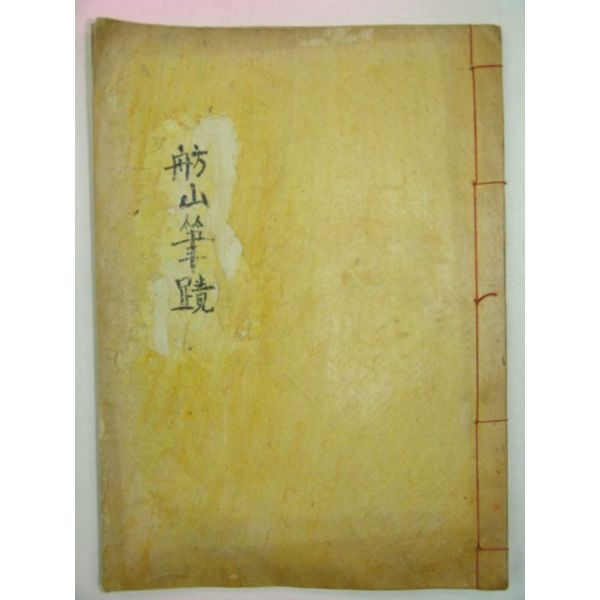 舫山筆蹟